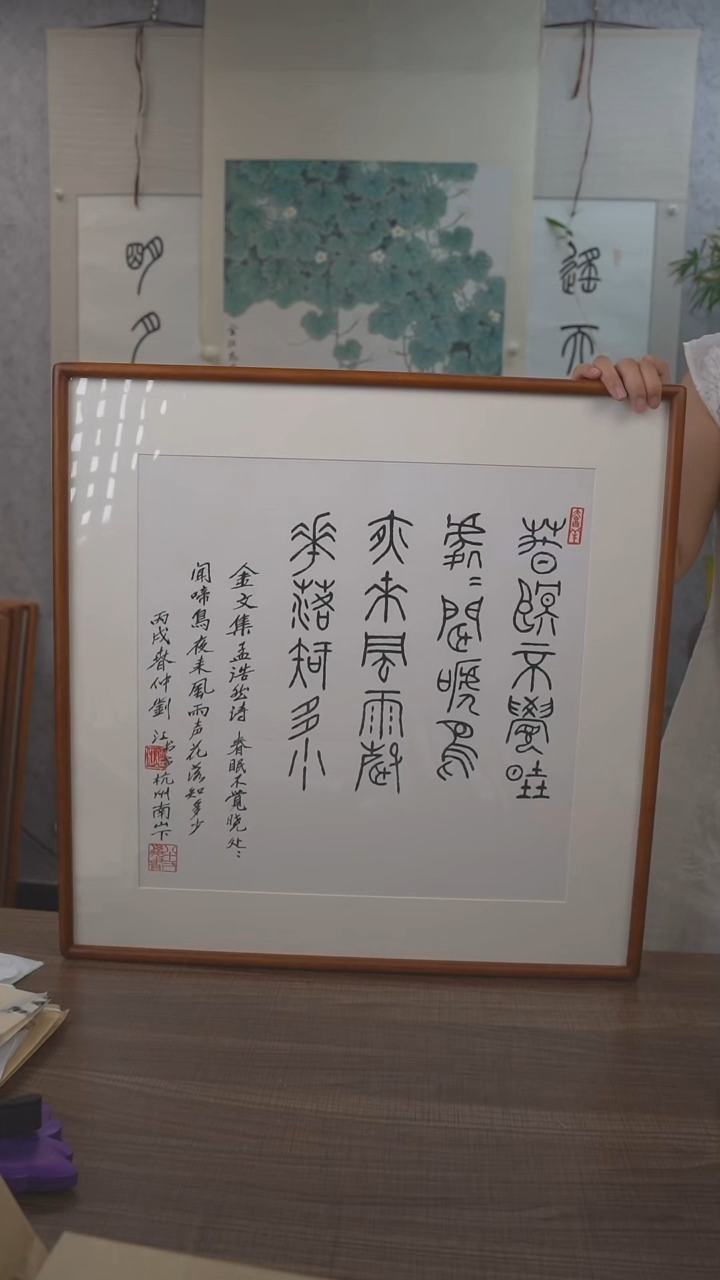 明月
遥天
春眠不覺曉
處〻聞啼鳥
夜来風雨聲
華落知多少
金文集孟浩然诗 春眠不覺晓处〻
闻啼鳥夜来風雨声花落知多少
丙戌春仲劉江书于杭州南山下